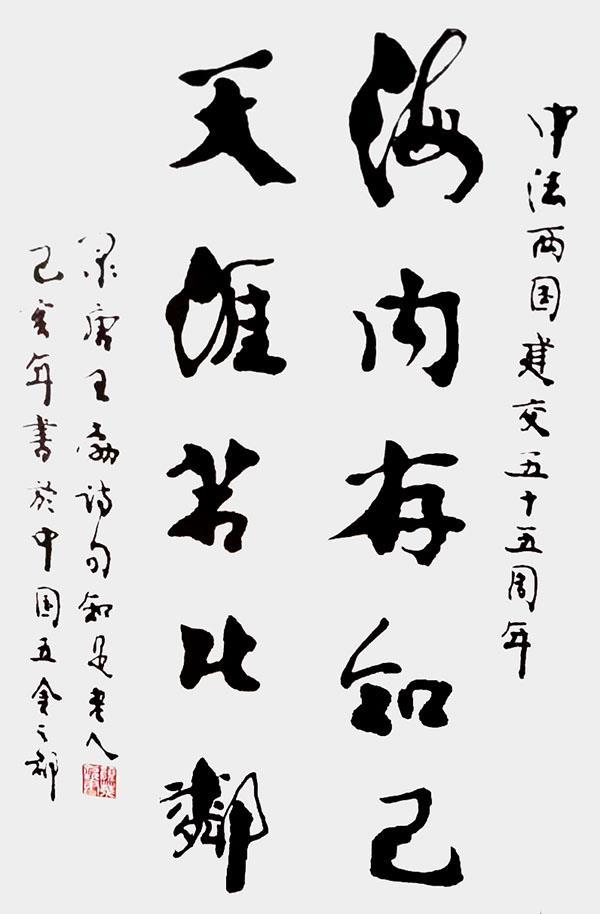 中法两国建交五十五周年
海内存知己
天涯若比鄰
录唐王勃诗句知是老人
己亥年書於中国五金之都